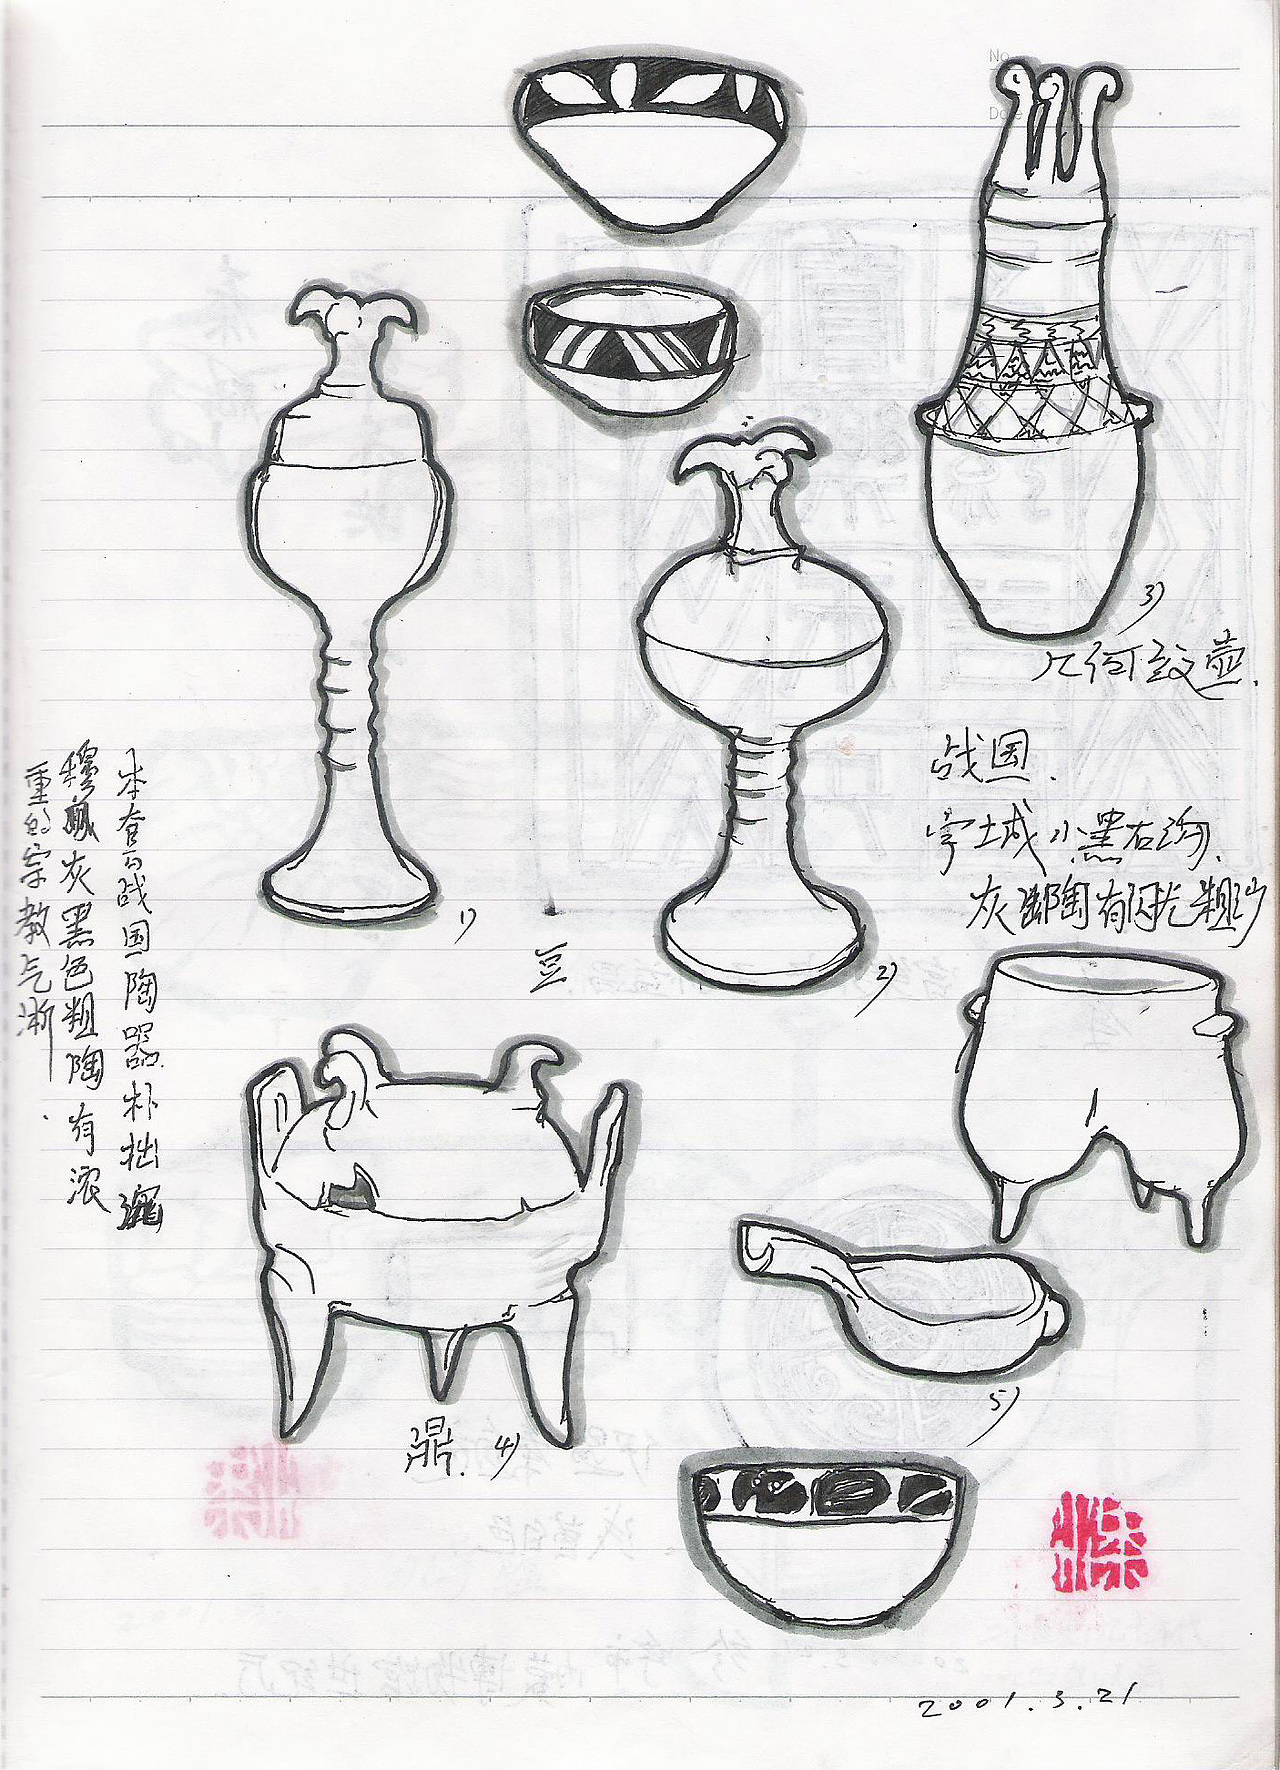 No
Da
3)
几何纹壶.
战国.
宁城 小黑石沟.
灰 陶有闪光粗沙
1)
豆
2)
本套为战国陶器朴拙
穆 灰黑色粗陶有浓
重的宗教气
鼎. 4)
5)
2001.3.21